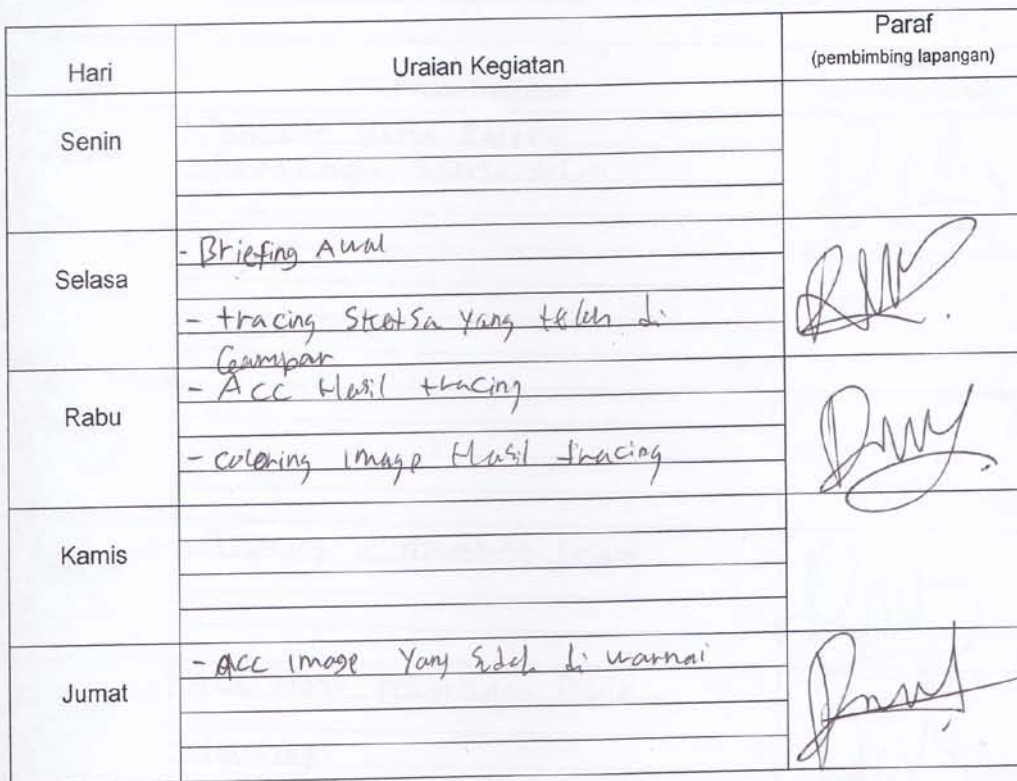 Hari Uraian Kegiatan Paraf
(pembimbing lapangan)
Senin
Selasa
- Briefing Awal
- tracing Sketsa Yang telah di
Gambar
Rabu
- Acc Hasil tracing
- coloring image Hasil tracing
Kamis
Jumat
- Acc image Yang Sudah di warnai